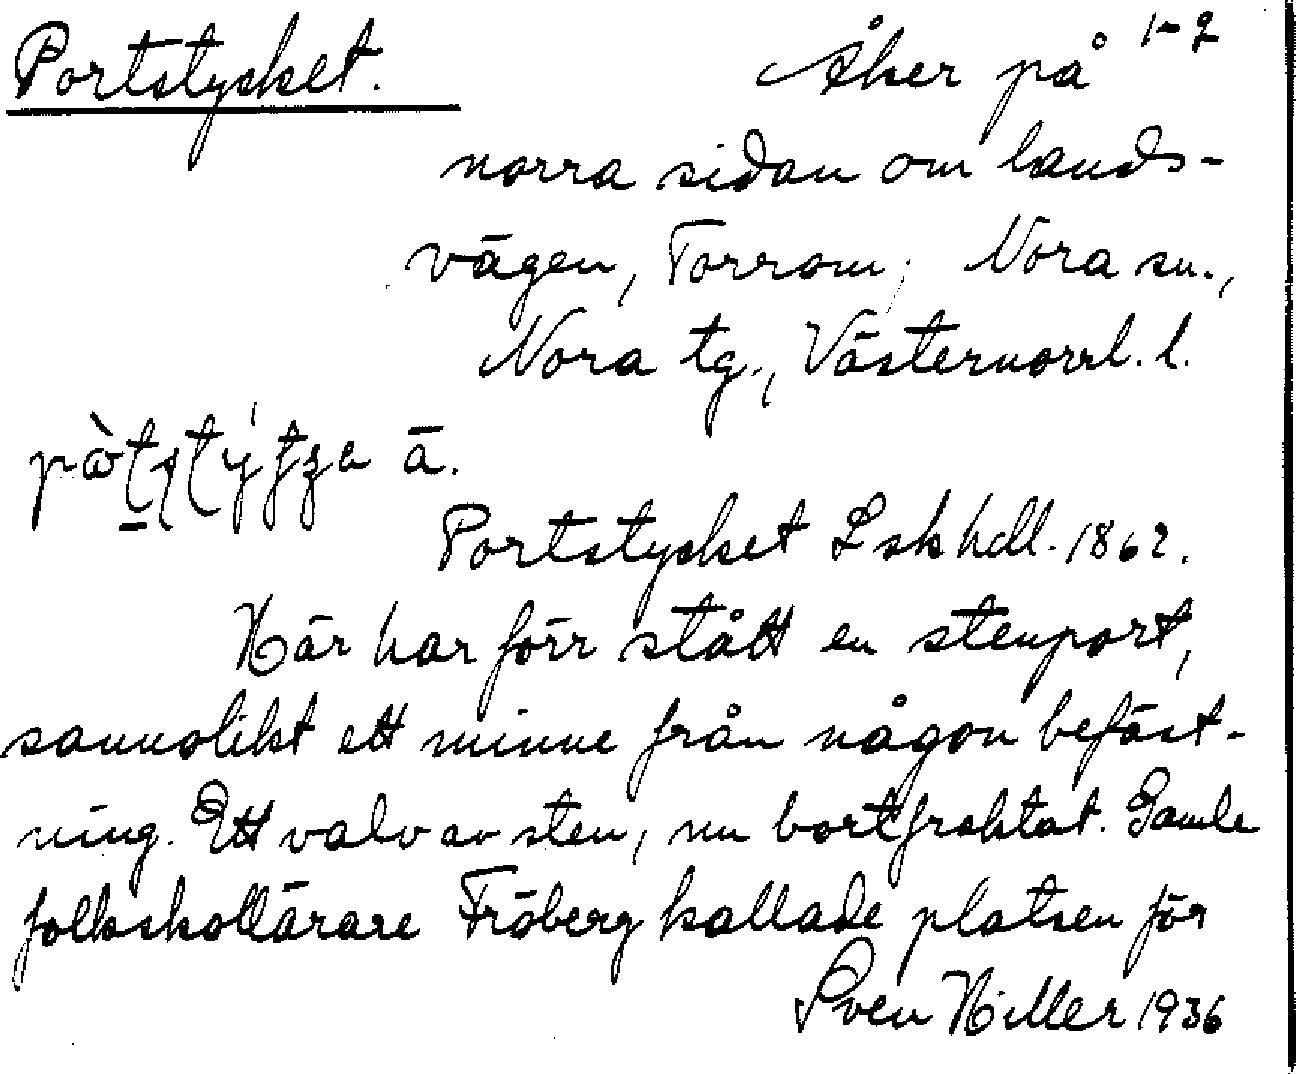 Portstycket. Åker på 1-2
norra sidan om lands-
vägen, Torrom; Nora sn.,
Nora tg., Västernorrl. l.
ā.
Portstycket Lskhdl. 1862.
Här har förr stått en stenport,
sannolikt ett minne från någon befäst-
ning. Ett valv av sten, nu bortfraktat. Gamle
folkskollärare Fröberg kallade platsen för
Sven Hiller 1936